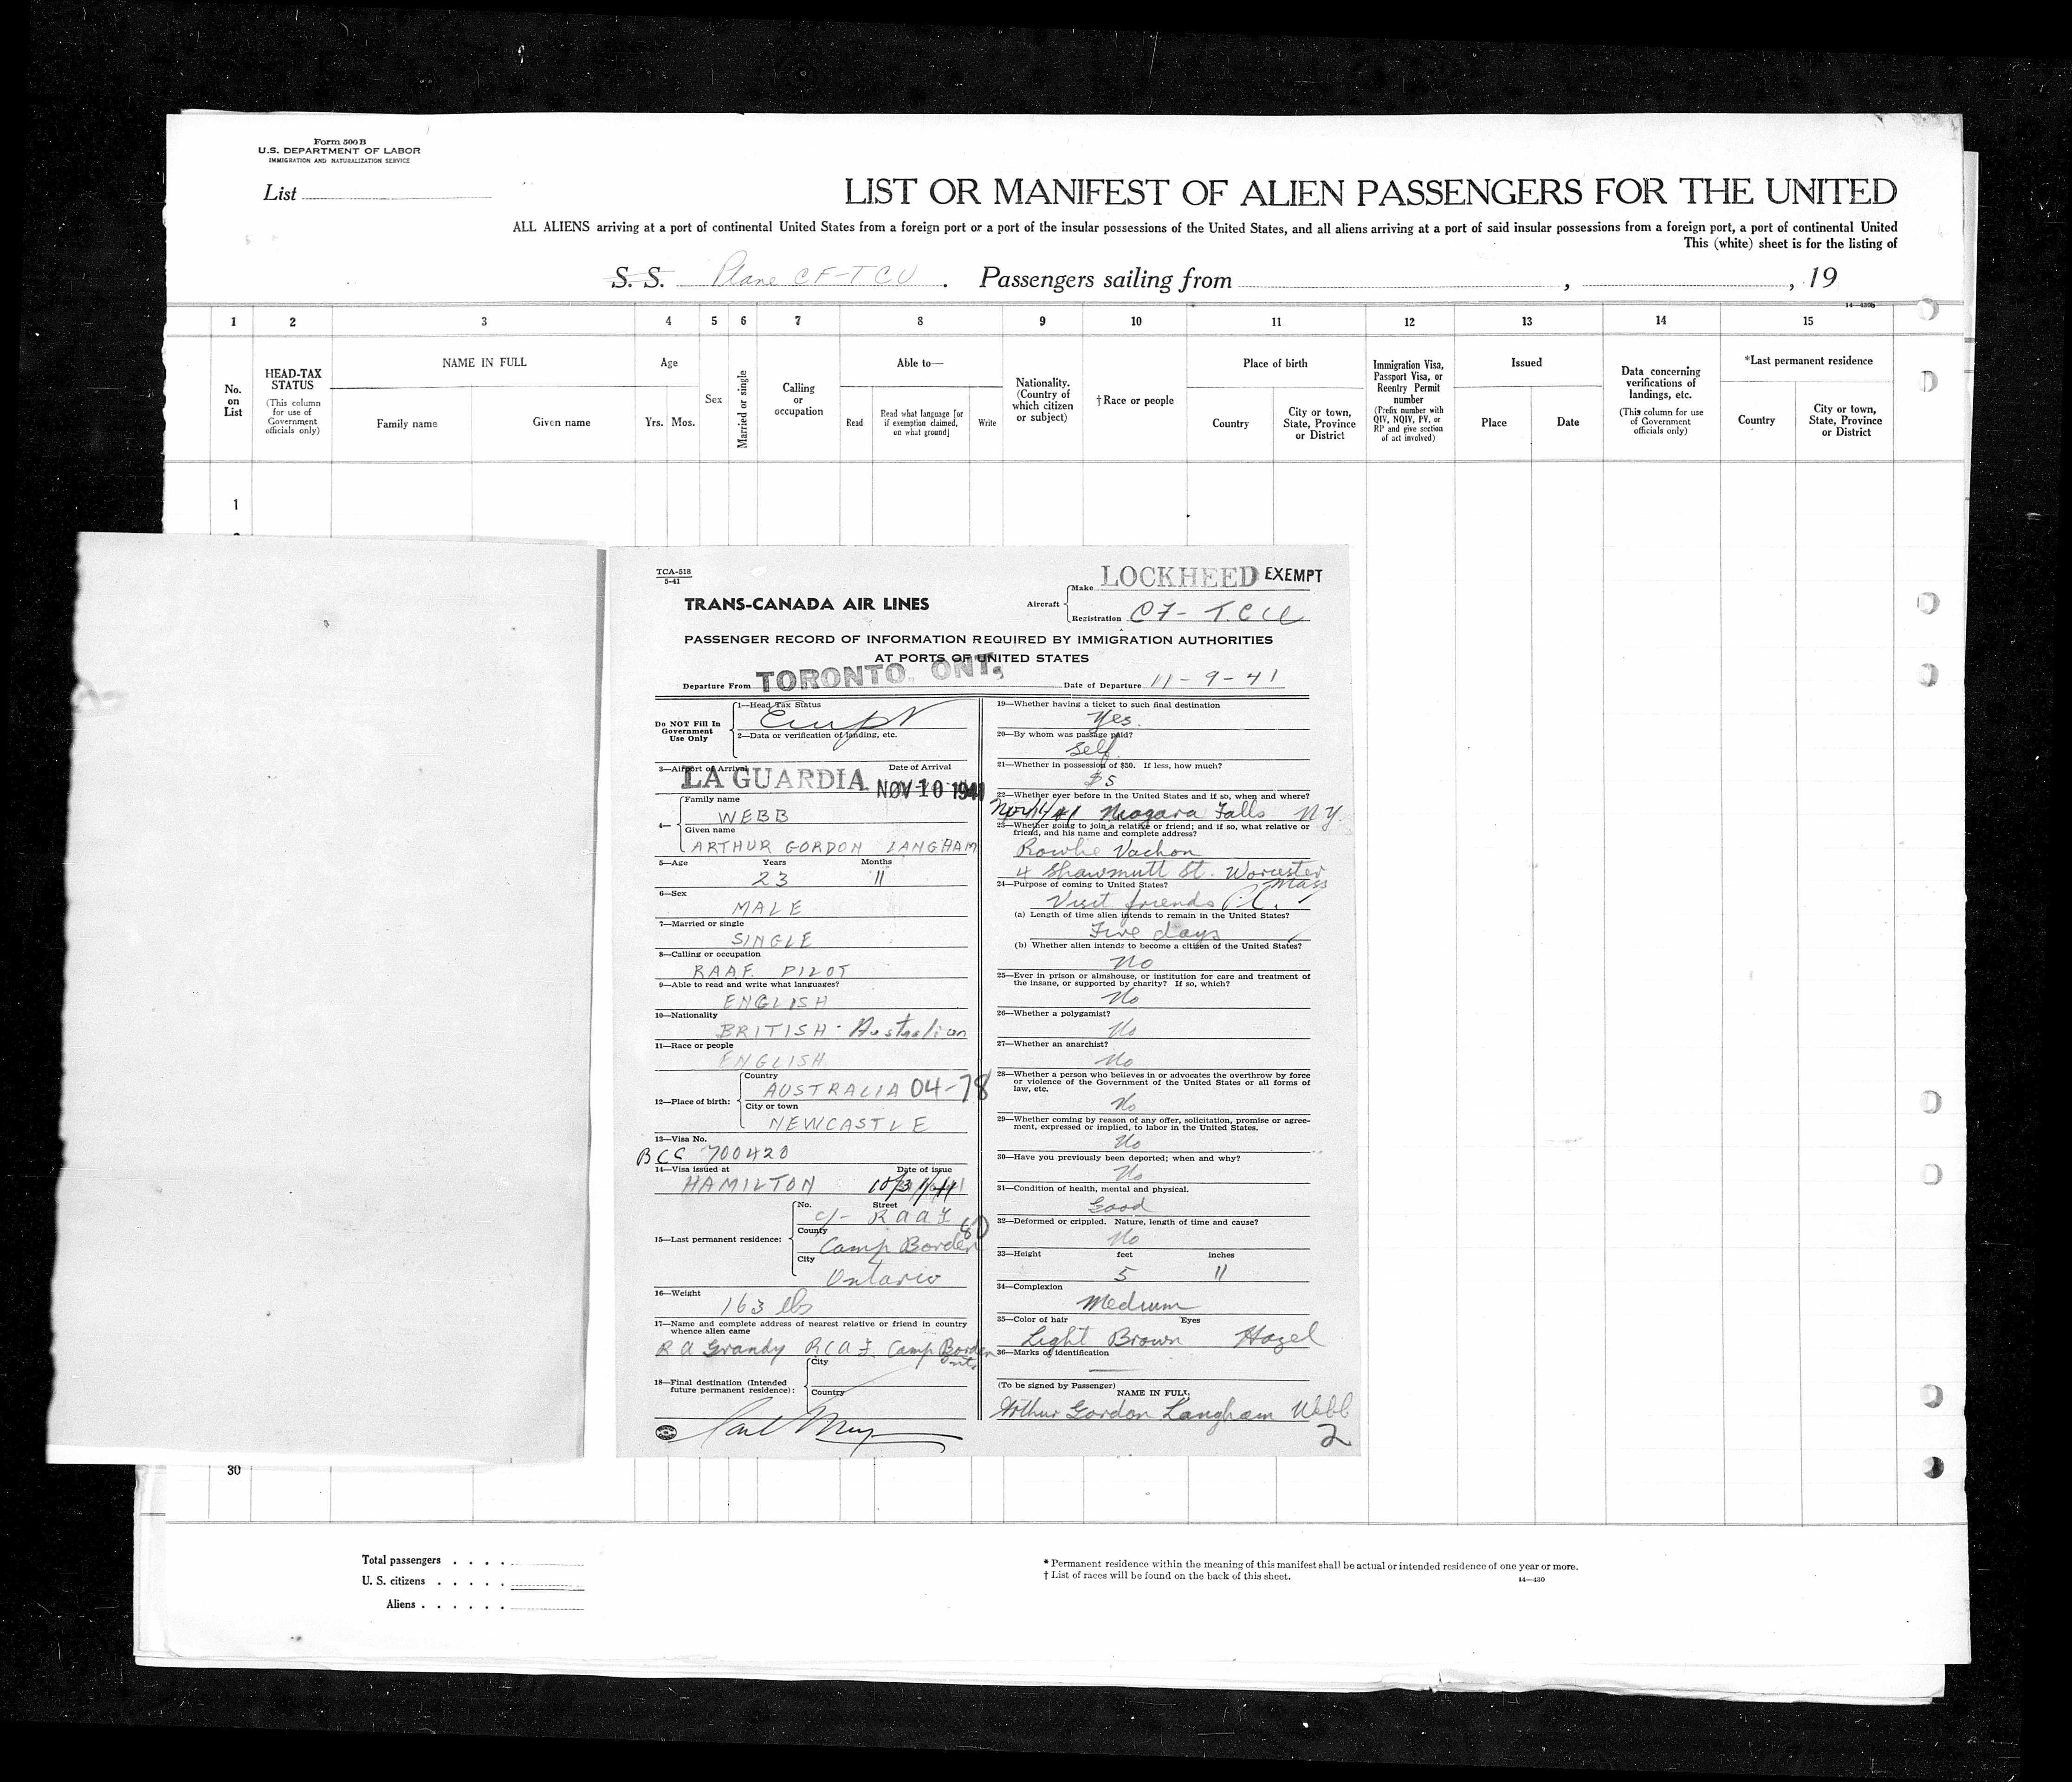 Form 500 B
U.S. DEPARTMENT OF LABOR
IMMIGRATION AND NATURALIZATION SERVICE
List
LIST OR MANIFEST OF ALIEN PASSENGERS FOR THE UNITED
ALL ALIENS arriving at a port of continental United States from a foreign port or a port of the insular possessions of the United States, and all aliens arriving at a port of said insular possessions from a foreign port, a port of continental United
This (white) sheet is for the listing of
S. S. Plane CF-TCU . Passengers sailing from , , 19
14—430b
1 2 3 4 5 6 7 8 9 10 11 12 13 14 15
No. on List
HEAD-TAX STATUS
(This column for use of Government officials only)
NAME IN FULL
Family name Given name
Age
Yrs. Mos.
Sex
Married or single
Calling or occupation
Able to—
Read
Read what language [or if exemption claimed, on what ground]
Write
Nationality. (Country of which citizen or subject)
† Race or people
Place of birth
Country
City or town, State, Province or District
Immigration Visa, Passport Visa, or Reentry Permit number
(Prefix number with QIV, NQIV, PV, or RP and give section of act involved)
Issued
Place Date
Data concerning verifications of landings, etc.
(This column for use of Government officials only)
*Last permanent residence
Country
City or town, State, Province or District
1
TCA-518
5-41
TRANS-CANADA AIR LINES
Aircraft
Make LOCKHEED EXEMPT
Registration CF- TCU
PASSENGER RECORD OF INFORMATION REQUIRED BY IMMIGRATION AUTHORITIES
AT PORTS OF UNITED STATES
Departure From TORONTO, ONT. Date of Departure 11-9-41
Do NOT Fill In Government Use Only
1—Head Tax Status
2—Data or verification of landing, etc.
3—Airport of Arrival Date of Arrival
LA GUARDIA NOV 10 1941
4—
Family name
WEBB
Given name
ARTHUR GORDON LANGHAM
5—Age Years Months
23 11
6—Sex
MALE
7—Married or single
SINGLE
8—Calling or occupation
RAAF PILOT
9—Able to read and write what languages?
ENGLISH
10—Nationality
BRITISH - Australian
11—Race or people
ENGLISH
12—Place of birth:
Country
AUSTRALIA 04-78
City or town
NEWCASTLE
13—Visa No.
BCC 700420
14—Visa issued at Date of issue
HAMILTON 10/31/41
15—Last permanent residence:
No. Street
c/- RAAF
County
Camp Borden
City
Ontario
16—Weight
163 lbs
17—Name and complete address of nearest relative or friend in country
whence alien came
R A Grandy RCAF. Camp Borden
Ont.
18—Final destination (Intended
future permanent residence):
City
Country
19—Whether having a ticket to such final destination
Yes.
20—By whom was passage paid?
Self
21—Whether in possession of $50. If less, how much?
$5
22—Whether ever before in the United States and if so, when and where?
Niagara Falls N Y.
23—Whether going to join a relative or friend; and if so, what relative or
friend, and his name and complete address?
Vachon
4 Shawmutt St. Worcester
Mass
24—Purpose of coming to United States?
Visit friends
(a) Length of time alien intends to remain in the United States?
Five days
(b) Whether alien intends to become a citizen of the United States?
No
25—Ever in prison or almshouse, or institution for care and treatment of
the insane, or supported by charity? If so, which?
No
26—Whether a polygamist?
No
27—Whether an anarchist?
No
28—Whether a person who believes in or advocates the overthrow by force
or violence of the Government of the United States or all forms of
law, etc.
No
29—Whether coming by reason of any offer, solicitation, promise or agree-
ment, expressed or implied, to labor in the United States.
No
30—Have you previously been deported; when and why?
No
31—Condition of health, mental and physical.
Good
32—Deformed or crippled. Nature, length of time and cause?
No
33—Height feet inches
5 11
34—Complexion
Medium
35—Color of hair Eyes
Light Brown Hazel
36—Marks of identification
(To be signed by Passenger)
NAME IN FULL
Arthur Gordon Langham Webb
2
30
Total passengers . . . .
U. S. citizens . . . . .
Aliens . . . . . .
* Permanent residence within the meaning of this manifest shall be actual or intended residence of one year or more.
† List of races will be found on the back of this sheet.
14—430